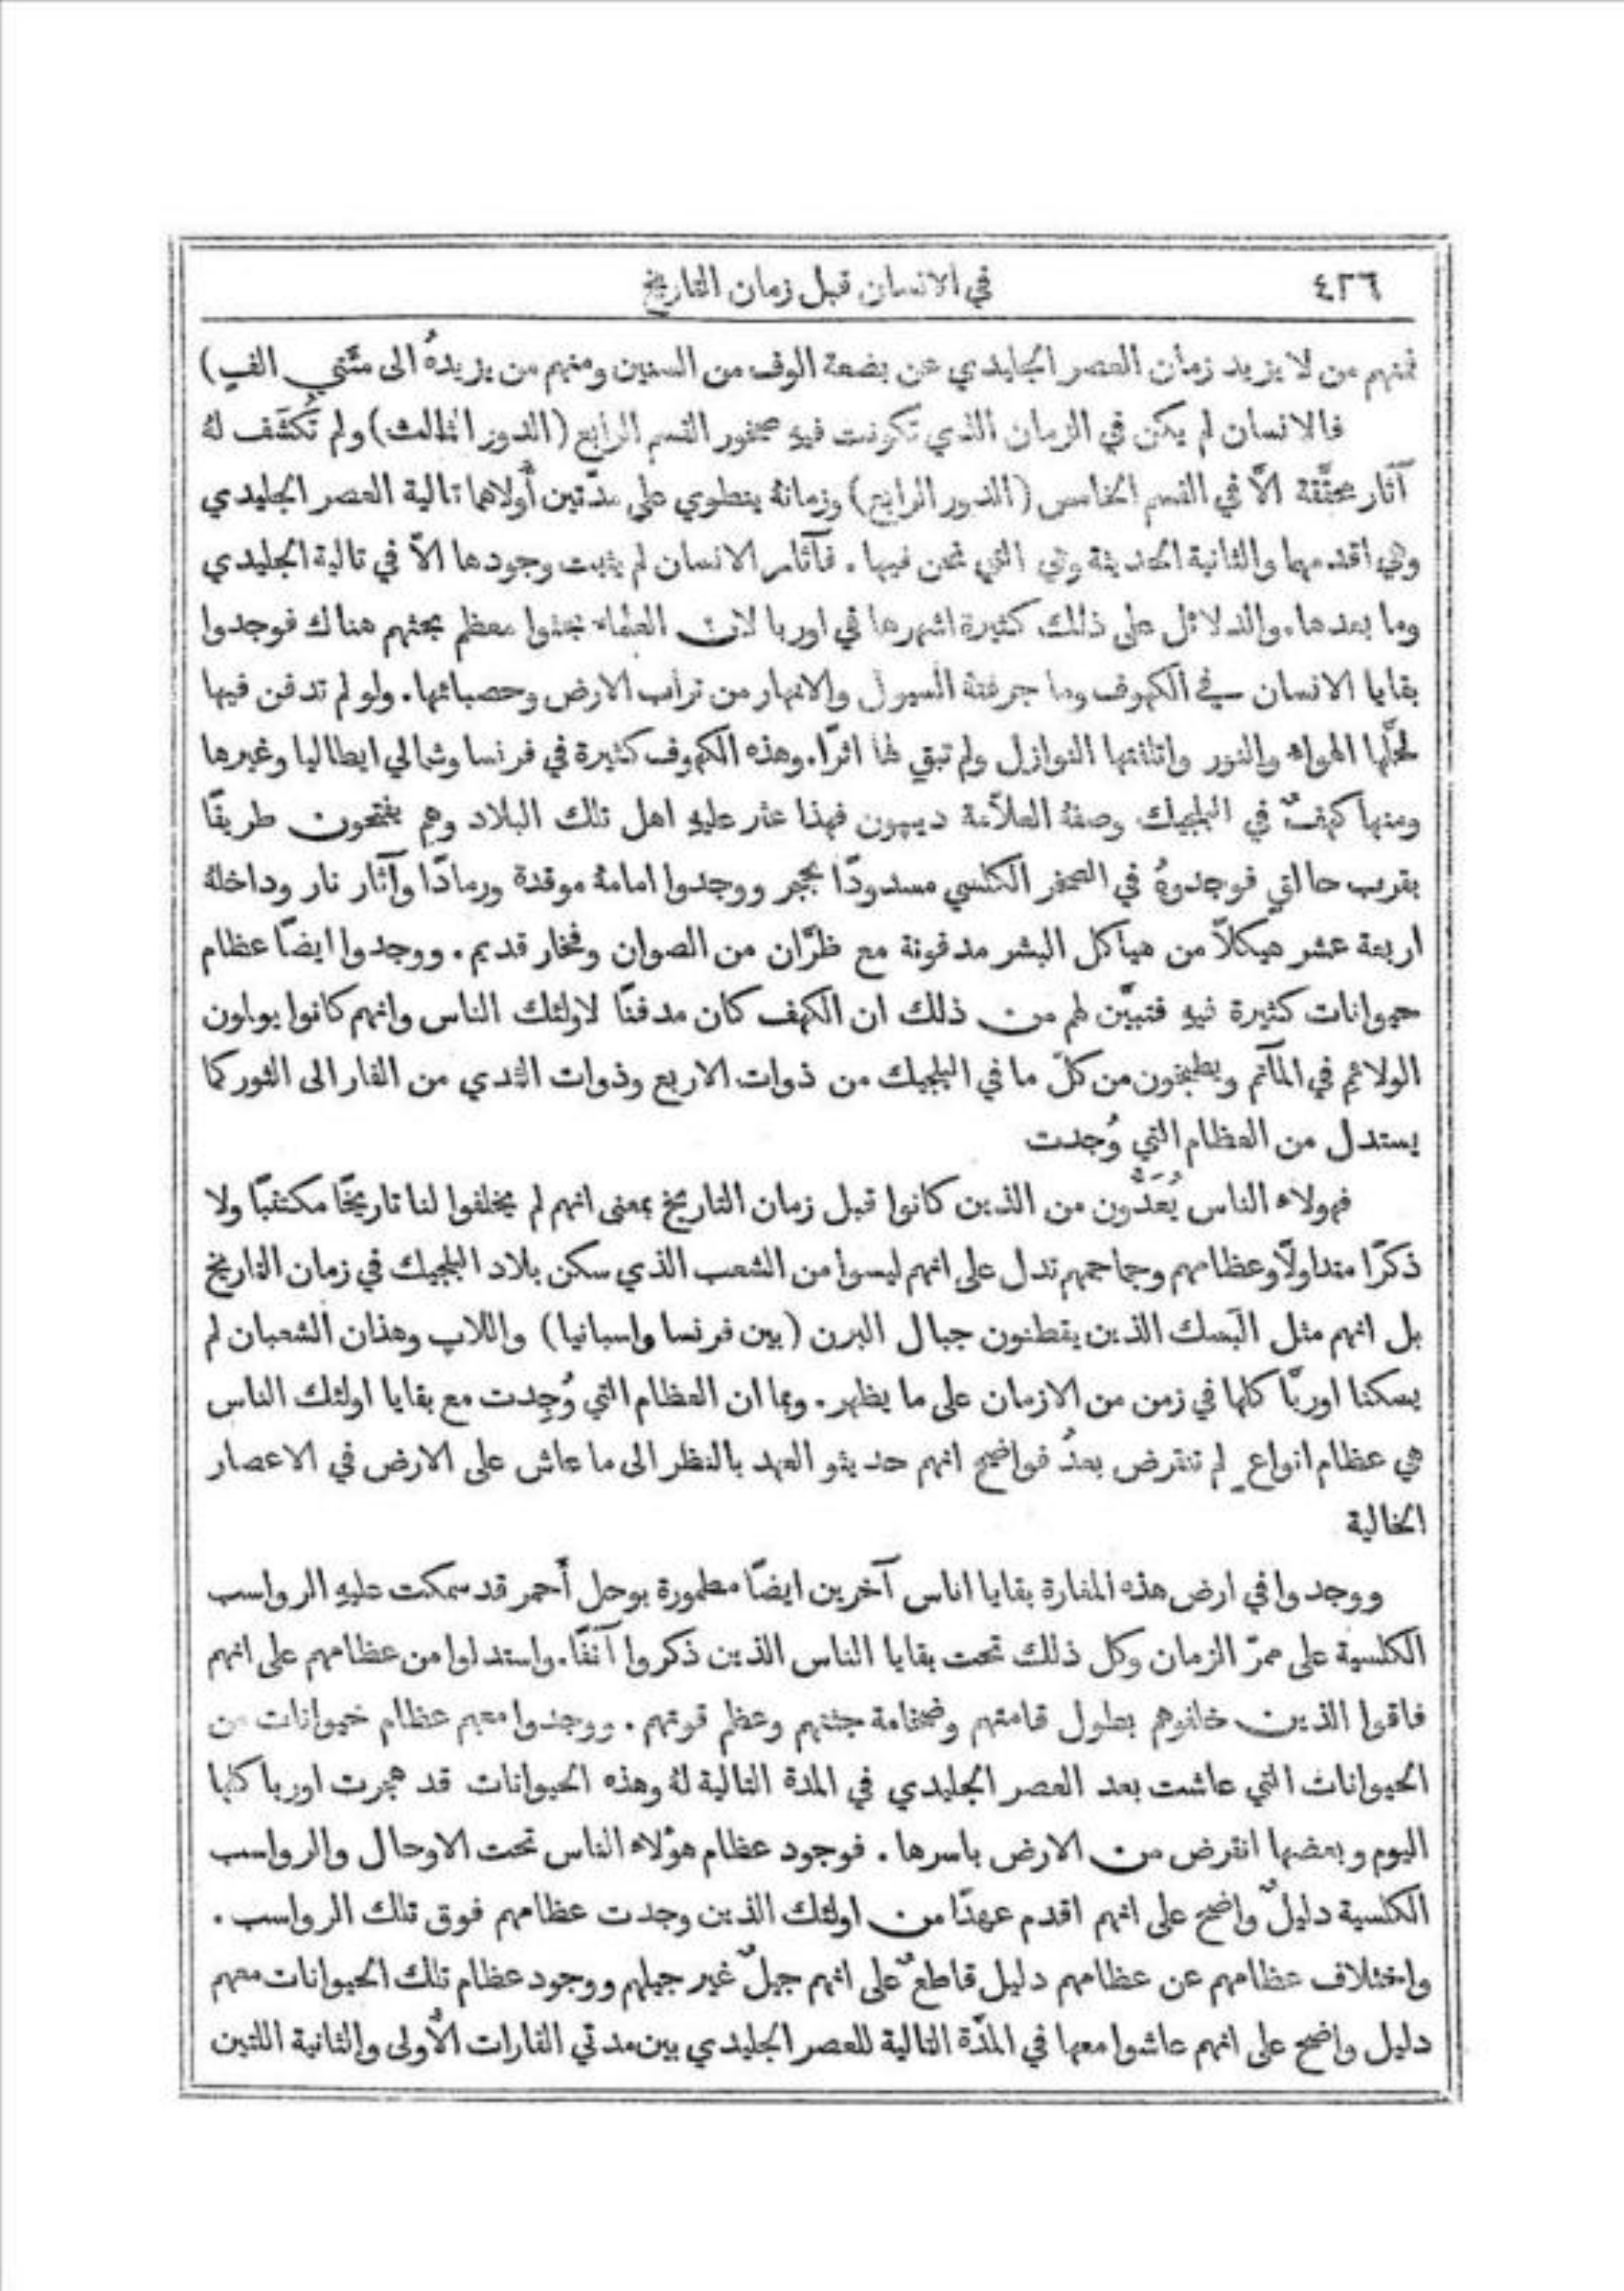 ٤٢٦
في الانسان قبل زمان التاريخ
فمنهم من لا يزيد زمان العصر الجليدي عن بضعة الوف من السنين ومنهم من يزيدهُ الى مئتي الفٍ)
فالانسان لم يكن في الزمان الذي تكونت فيهِ صخور القسم الرابع (الدور الثالث) ولم تُكشَف لهُ
آثار محقَّقة الَّا في القسم الخامس (الدور الرابع) وزمانهُ ينطوي على مدَّتين أُولاهما تالية العصر الجليدي
وهي اقدمهما والثانية الحديثة وهي التي نحن فيها . فآثار الانسان لم يثبت وجودها الَّا في تالية الجليدي
وما بعدها. والدلائل على ذلك كثيرة اشهرها في اوربا لان العلماء بحثوا معظم بحثهم هناك فوجدوا
بقايا الانسان في الكهوف وما جرفتهُ السيول والانهار من تراب الارض وحصبائها. ولو لم تدفن فيها
لحلَّها الهواء والنور واتلفتها النوازل ولم تبقي لها اثرًا. وهذه الكهوف كثيرة في فرنسا وشمالي ايطاليا وغيرها
ومنها كهفٌ في البلجيك وصفهُ العلاَّمة ديبون فهذا عثر عليهِ اهل تلك البلاد وهم يفتحون طريقًا
بقرب حائطٍ فوجدوهُ في الصخر الكلسي مسدودًا بحجر ووجدوا امامهُ موقدة ورمادًا وآثار نار وداخلهُ
اربعة عشر هيكلاً من هياكل البشر مدفونة مع ظرَّان من الصوان وفخار قديم . ووجدوا ايضًا عظام
حيوانات كثيرة فيهِ فتبيَّن لهم من ذلك ان الكهف كان مدفنًا لاولئك الناس وانهم كانوا يولون
الولائم في المآتم ويطبخون من كلّ ما في البلجيك من ذوات الاربع وذوات الثدي من الفار الى الثور كما
يستدل من العظام التي وُجدت
فهولاء الناس يُعَدُّون من الذين كانوا قبل زمان التاريخ بمعنى انهم لم يخلفوا لنا تاريخًا مكتتبًا ولا
ذكرًا متداولًا وعظامهم وجماجمهم تدل على انهم ليسوا من الشعب الذي سكن بلاد البلجيك في زمان التاريخ
بل انهم مثل البَسك الذين يقطنون جبال البرن (بين فرنسا واسبانيا) واللاپ وهذان الشعبان لم
يسكنا اوربَّا كلها في زمن من الازمان على ما يظهر. وبما ان العظام التي وُجِدت مع بقايا اولئك الناس
هي عظام انواعٍ لم تنقرض بعدُ فواضح انهم حديثو العهد بالنظر الى ما عاش على الارض في الاعصار
الخالية
ووجدوا في ارض هذه المغارة بقايا اناس آخرين ايضًا مطمورة بوحل أحمر قد سمكت عليهِ الرواسب
الكلسية على ممرّ الزمان وكل ذلك تحت بقايا الناس الذين ذكروا آنفًا. واستدلوا من عظامهم على انهم
فاقوا الذين خلفوهم بطول قامتهم وضخامة جثثهم وعظم قوتهم . ووجدوا معهم عظام حيوانات من
الحيوانات التي عاشت بعد العصر الجليدي في المدة التالية لهُ وهذه الحيوانات قد هجرت اوربا كلها
اليوم وبعضها انقرض من الارض باسرها . فوجود عظام هؤلاء الناس تحت الاوحال والرواسب
الكلسية دليلٌ واضح على انهم اقدم عهدًا من اولئك الذين وجدت عظامهم فوق تلك الرواسب .
واختلاف عظامهم عن عظامهم دليل قاطعٌ على انهم جيلٌ غير جيلهم ووجود عظام تلك الحيوانات معهم
دليل واضح على انهم عاشوا معها في المدَّة التالية للعصر الجليدي بين مدتي القارات الأولى والثانية اللتين